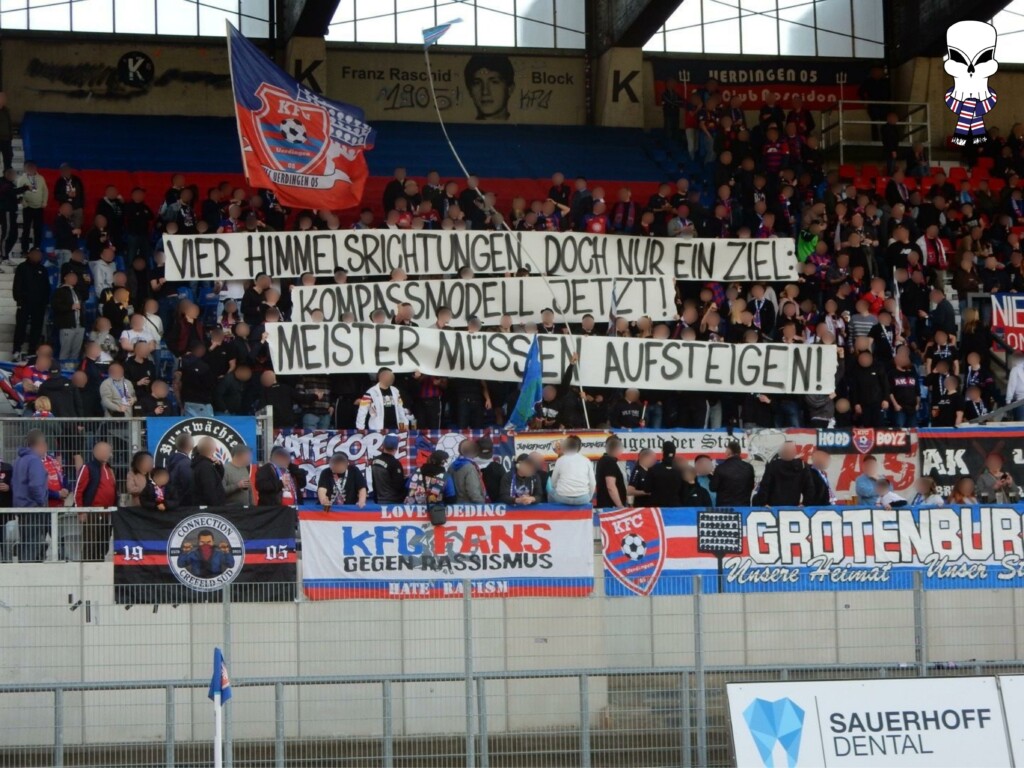 K
K
Franz Raschid
Block
1905!
KFC
K
UERDINGEN 05
Club Poseidon
KFC
Uerdingen
05
UERDINGEN 05
VIER HIMMELSRICHTUNGEN, DOCH NUR EIN ZIEL:
KOMPASSMODELL JETZT!
MEISTER MÜSSEN AUFSTEIGEN!
Bergwächter
KATEGORIE
Jugend der Stadt
HOOD BOYZ
AK
19 05
CONNECTION
CREFELD-SÜD
LOVE UERDING
KFC FANS
GEGEN RASSISMUS
HATE RACISM
KFC
Uerdingen
GROTENBUR
Unsere Heimat
Unser St
SAUERHOFF
DENTAL